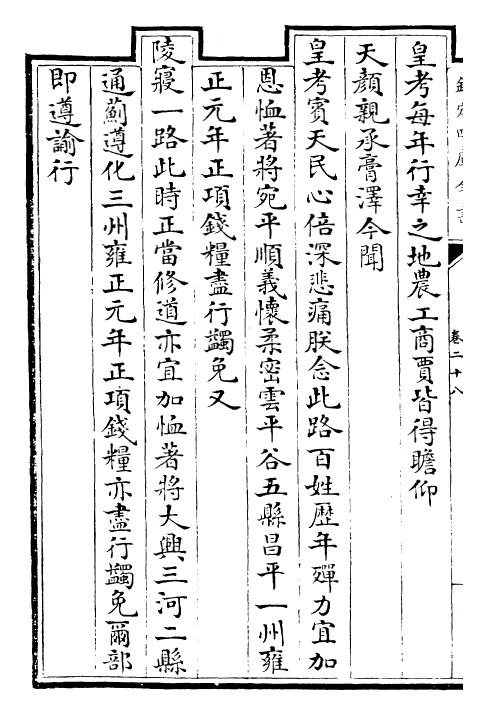 皇考每年行幸之地農工商賈皆得瞻仰
天顏親承膏澤今聞
皇考賓天民心倍深悲痛朕念此路百姓歷年殫力宜加
恩恤著將宛平順義懷柔密雲平谷五縣昌平一州雍
正元年正項錢糧盡行蠲免又
陵寢一路此時正當修道亦宜加恤著將大興三河二縣
通薊遵化三州雍正元年正項錢糧亦盡行蠲免爾部
即遵諭行
欽定四庫全書
卷二十八